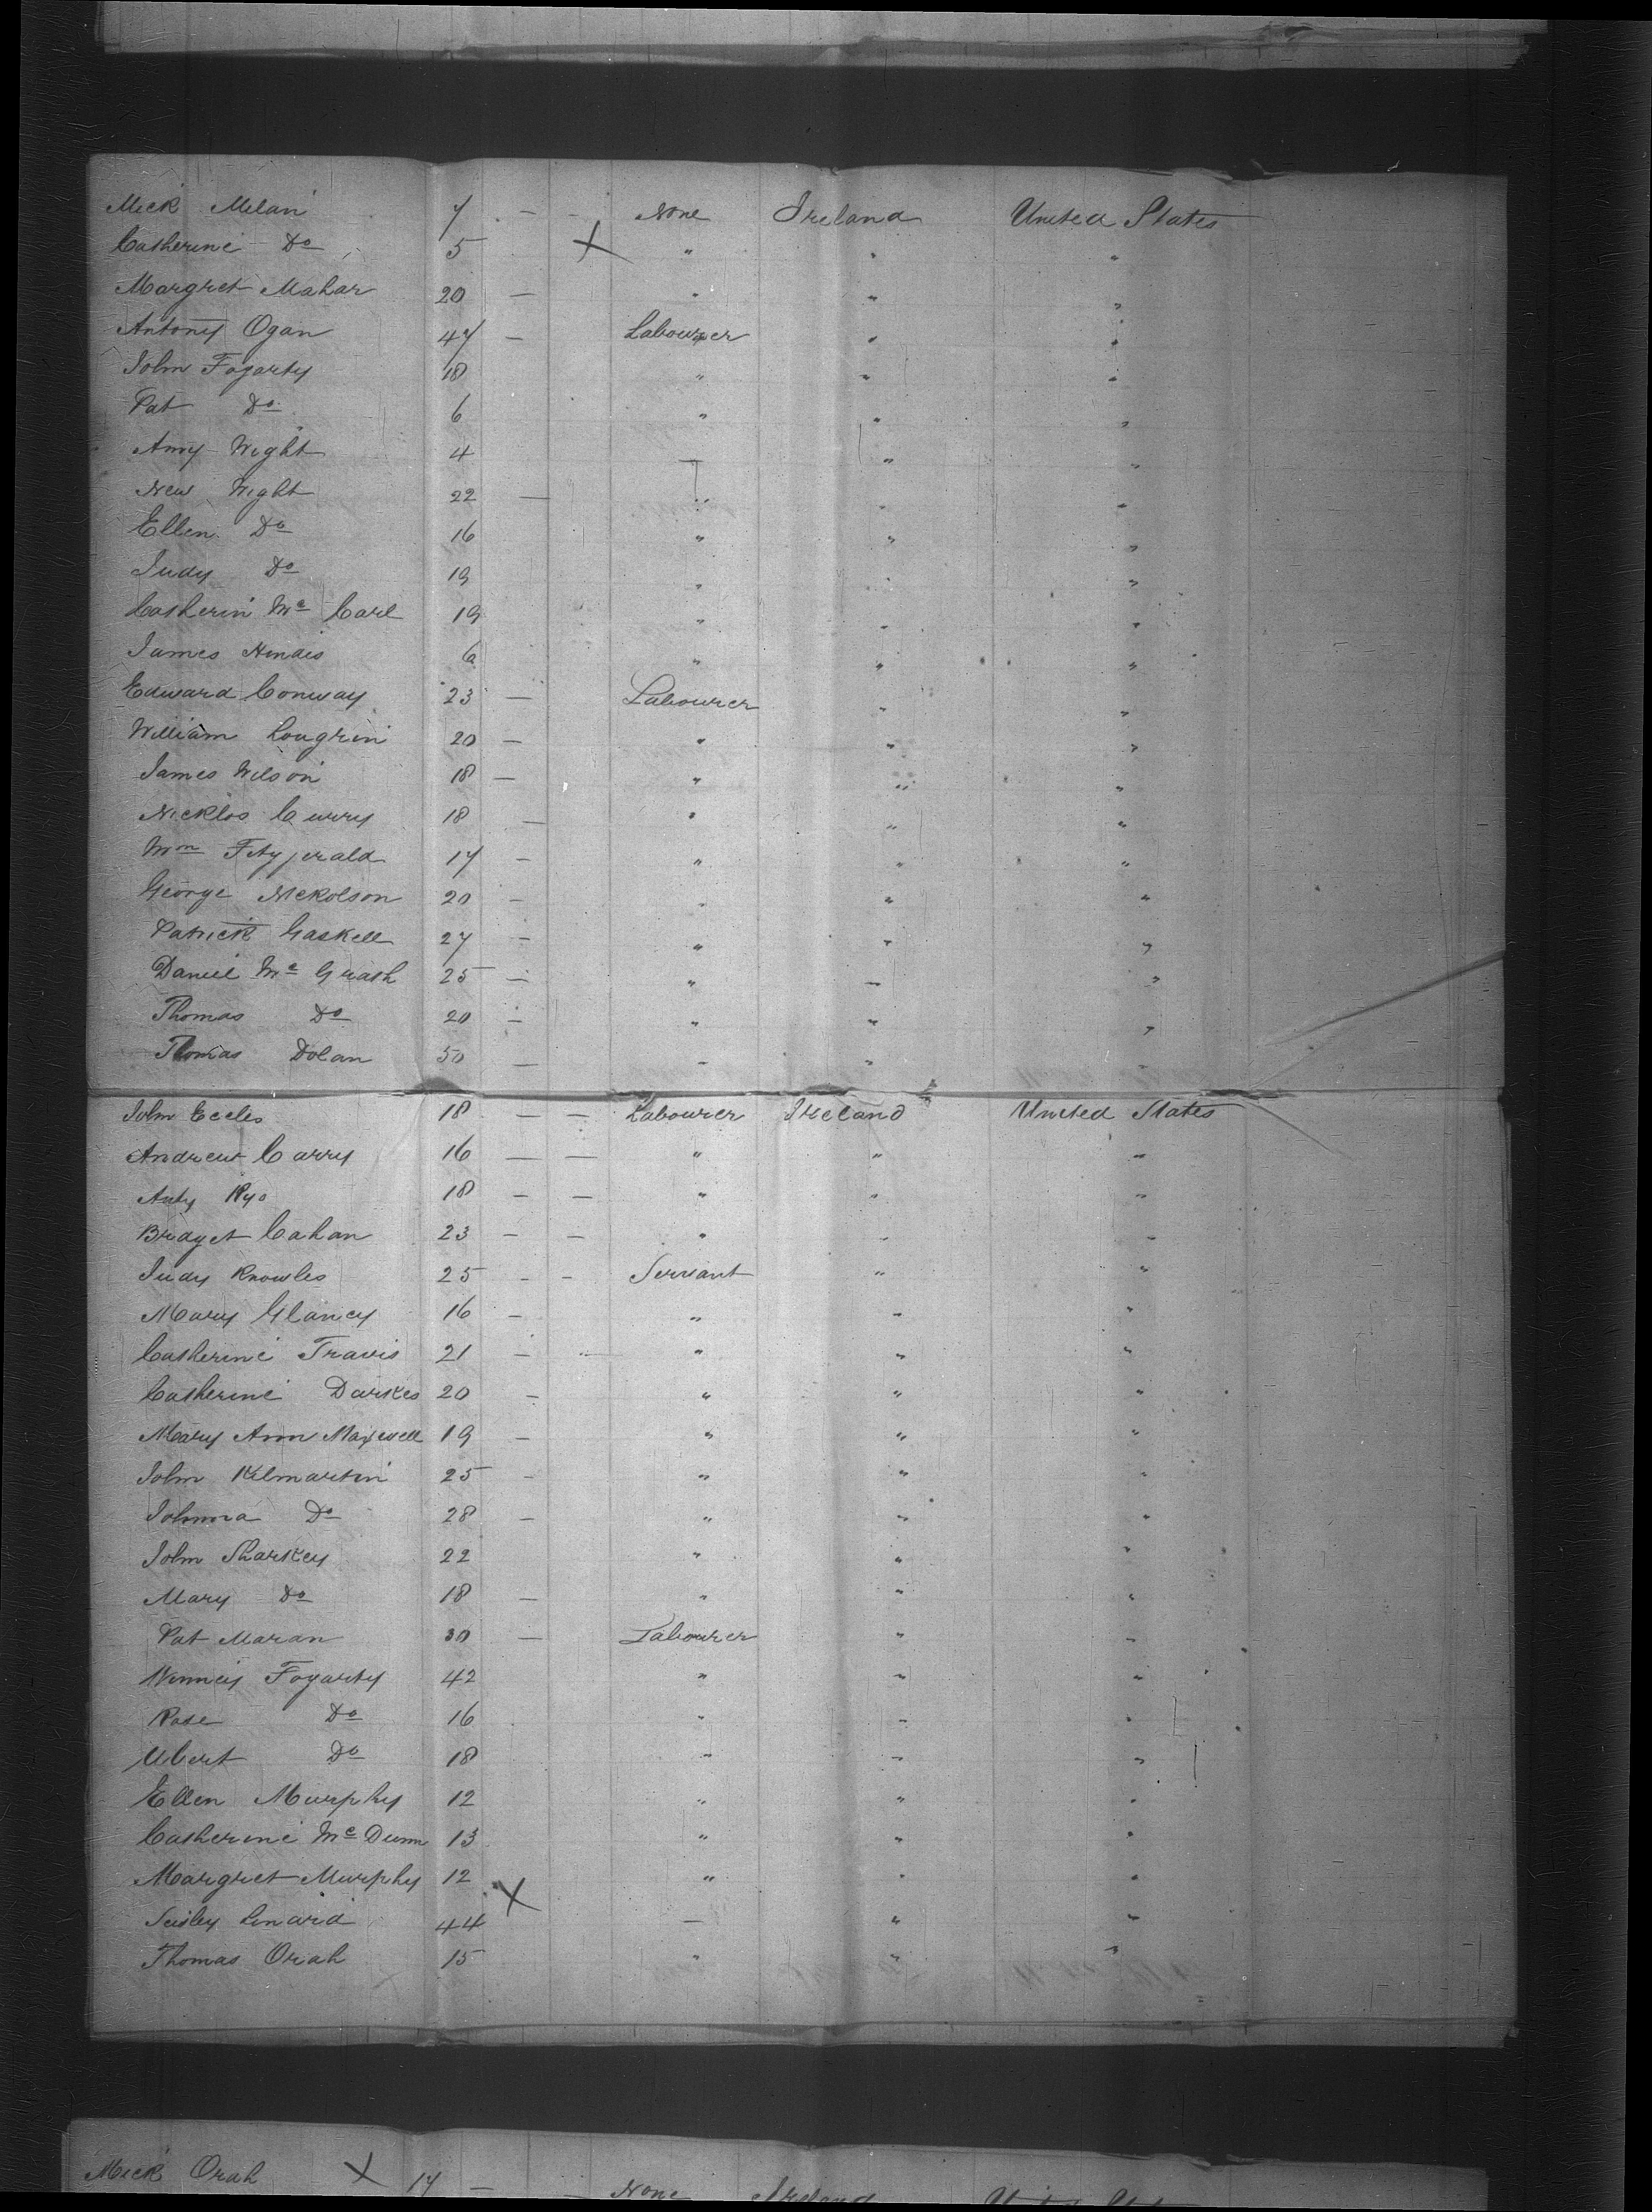 Mick Milan 7 - - None Ireland United States
Catherine Do 5 X " " "
Margret Mahar 20 — " " "
Antony Ogan 47 — Labourer " "
John Fogarty 18 " " "
Pat Do 6 " " "
Amy Wight 4 — " "
New Wight 22 — " " "
Ellen Do 16 " " "
Judy Do 19 " " "
Catherin Mc Carl 19 " " "
James Hindes 6 " " "
Edward Conway 23 — Labourer " "
William Lougrin 20 — " " "
James Wilson 18 — " " "
Nicklos Curry 18 — " " "
Wm Fitzjerald 17 — " " "
George Nickolson 20 — " " "
Patrick Gaskell 27 — " " "
Daniel Mc Grath 25 — " " "
Thomas Do 20 — " " "
Thomas Dolan 50 — " " "
John Eccles 18 — — Labourer Ireland United States
Andrew Carry 16 — — " " "
Anty Ryo 18 — — " " "
Bridget Cahan 23 — — " " "
Judy Knowles 25 - - Servant " "
Mary Glancy 16 — " " "
Catherine Travis 21 — — " " "
Catherine Darkes 20 — " " "
Mary Ann Maxwell 19 — " " "
John Kilmartin 25 — " " "
Johnna Do 28 — " " "
John Sharkey 22 " " "
Mary Do 18 — " " "
Pat Maran 30 — Labourer " "
Winney Fogarty 42 " " "
Rose Do 16 " " "
Do 18 " " "
Ellen Murphy 12 " " "
Catherine Mc Dunn 13 " " "
Margret Murphy 12 " " "
Linard 44 X — " "
Thomas Orah 15 " " "
Mick Orah X 17 — — None Ireland United States